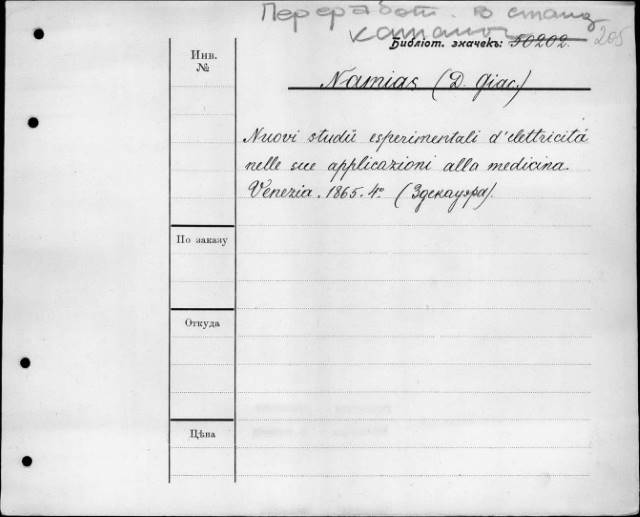 Переработ. в станд
каталог 205
Библіот. значекъ: 50202.
Инв.
№
Namias (D. Giac.)
Nuovi studii esperimentali d'elettricitá
nelle sue applicazioni alla medicina.
Venezia. 1865. 4º (Эдекауэра).
По заказу
Откуда
Цѣна